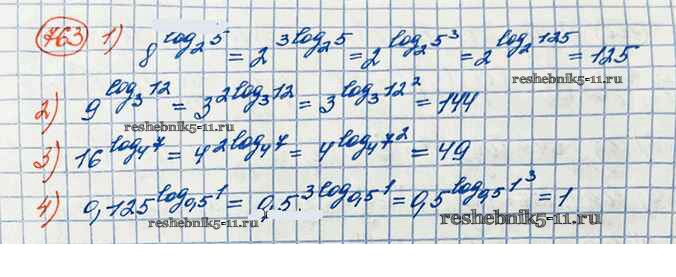 763 1) 8^{log_2 5} = 2^{3log_2 5} = 2^{log_2 5^3} = 2^{log_2 125} = 125
reshebnik5-11.ru
2) 9^{log_3 12} = 3^{2log_3 12} = 3^{log_3 12^2} = 144
reshebnik5-11.ru
3) 16^{log_4 7} = 4^{2log_4 7} = 4^{log_4 7^2} = 49
4) 0,125^{log_{0,5} 1} = 0,5^{3log_{0,5} 1} = 0,5^{log_{0,5} 1^3} = 1
reshebnik5-11.ru